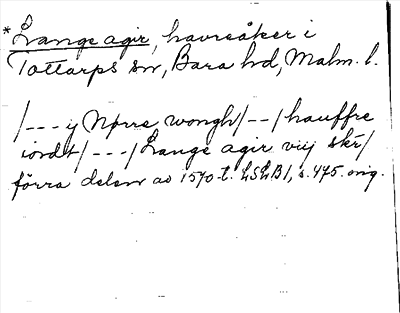 *Lange agir, havreåker i
Tottarps sn, Bara hd, Malm. l.
/---ij Nørre wongh/--/hauffre
iordt/---/Lange agir viij skr/
förra delen av 1570-t. LSLB1, s. 475. orig.